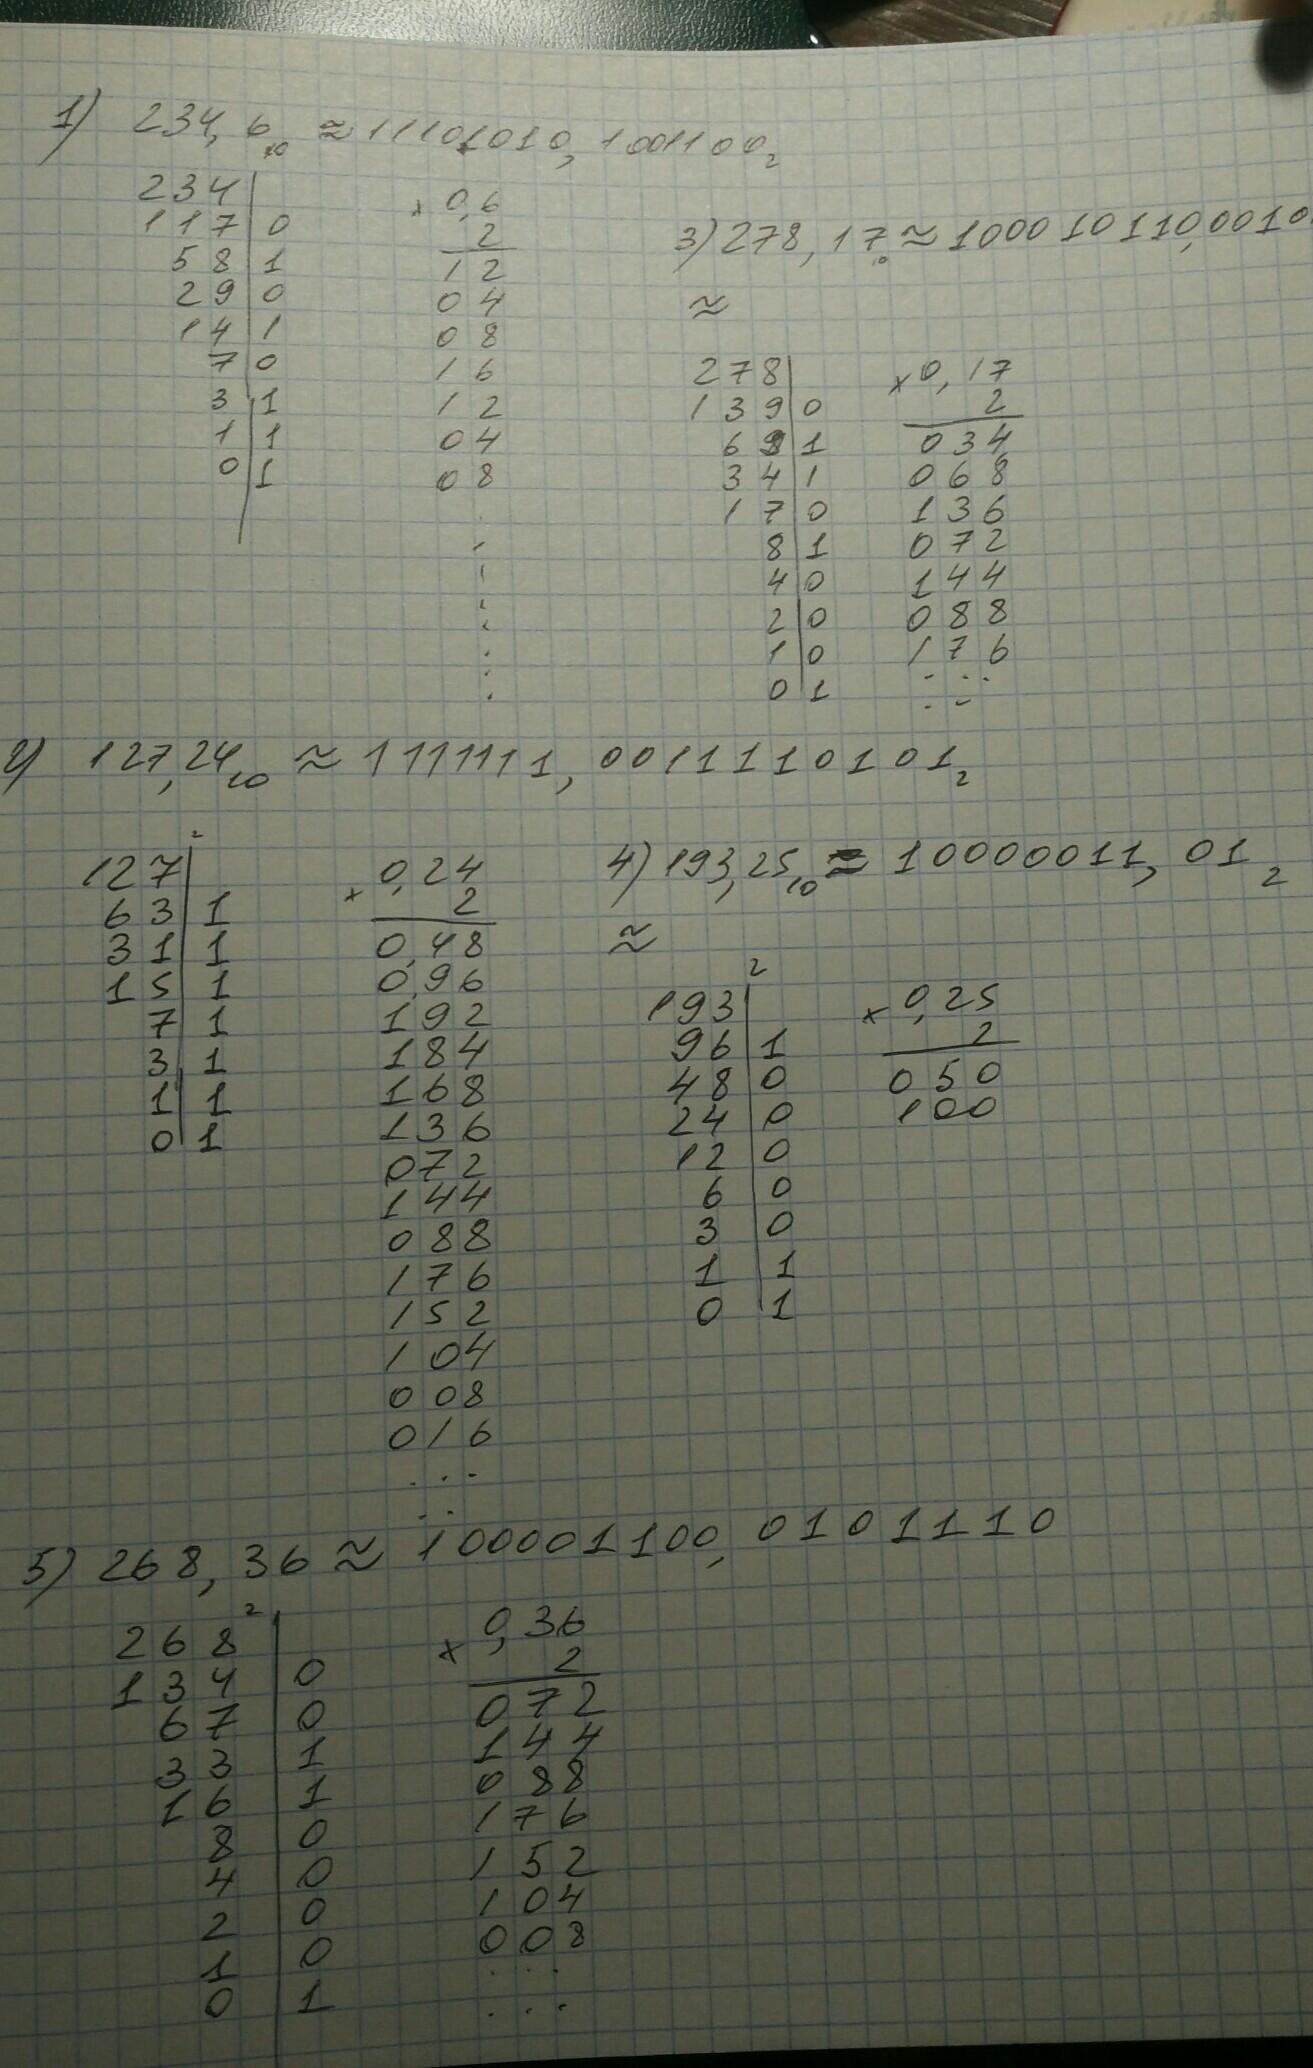 1) 234,6₁₀ ≈ 11101010,1001100₂
234
117 | 0
58 | 1
29 | 0
14 | 1
7 | 0
3 | 1
1 | 1
0 | 1
× 0,6
2
12
04
08
16
12
04
08
3) 278,17₁₀ ≈ 100010110,0010
≈
278
139 | 0
69 | 1
34 | 1
17 | 0
8 | 1
4 | 0
2 | 0
1 | 0
0 | 1
× 0,17
2
034
068
136
072
144
088
176
...
2) 127,24₁₀ ≈ 1111111,0011110101₂
127 | 2
63 | 1
31 | 1
15 | 1
7 | 1
3 | 1
1 | 1
0 | 1
× 0,24
2
0,48
0,96
192
184
168
136
072
144
088
176
152
104
008
016
...
4) 193,25₁₀ = 10000011,01₂
≈
193 | 2
96 | 1
48 | 0
24 | 0
12 | 0
6 | 0
3 | 0
1 | 1
0 | 1
× 0,25
2
050
100
5) 268,36 ≈ 100001100,0101110
268 | 2
134 | 0
67 | 0
33 | 1
16 | 1
8 | 0
4 | 0
2 | 0
1 | 0
0 | 1
× 0,36
2
072
144
088
176
152
104
008
...
...